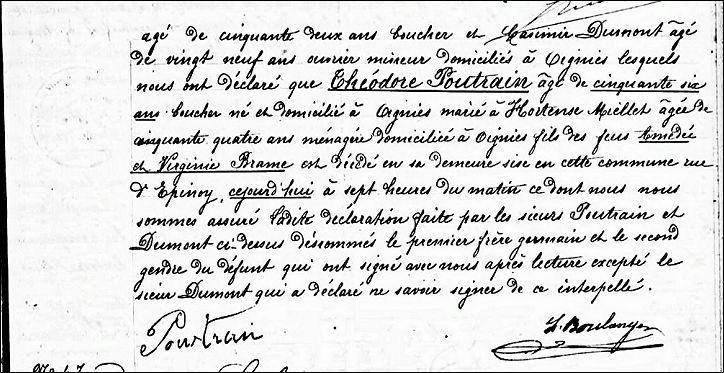 agé de cinquante deux ans boucher et Casimir Dumont âgé
de vingt neuf ans ouvrier mineur domiciliés à Oignies lesquels
nous ont déclaré que Théodore Poutrain âgé de cinquante six
ans boucher né et domicilié à Oignies marié à Hortense Miellet âgée de
cinquante quatre ans ménagère domiciliée à Oignies fils des feus Amédée
et Virginie Brame est décédé en sa demeure sise en cette commune rue
d'Epinoy, cejourd'hui à sept heures du matin ce dont nous nous
sommes assuré ladite déclaration faite par les sieurs Poutrain et
Dumont ci-dessus dénommés le premier frère germain et le second
gendre du défunt qui ont signé avec nous après lecture excepté le
sieur Dumont qui a déclaré ne savoir signer de ce interpellé.
Poutrain